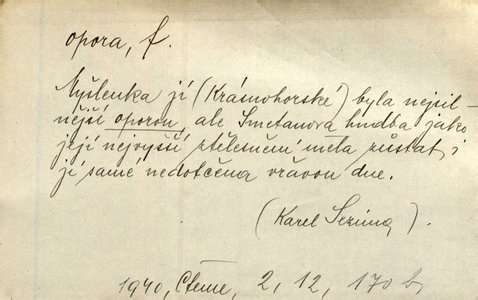 opora, f.
Myšlenka jí (Krásnohorské) byla nejsil-
nější oporou, ale Smetanova hudba jako
její nejvyšší ztělesnění měla zůstat i
jí samé nedotčena vřavou dne.
(Karel Sezima).
1940, Čteme, 2, 12, 170 b